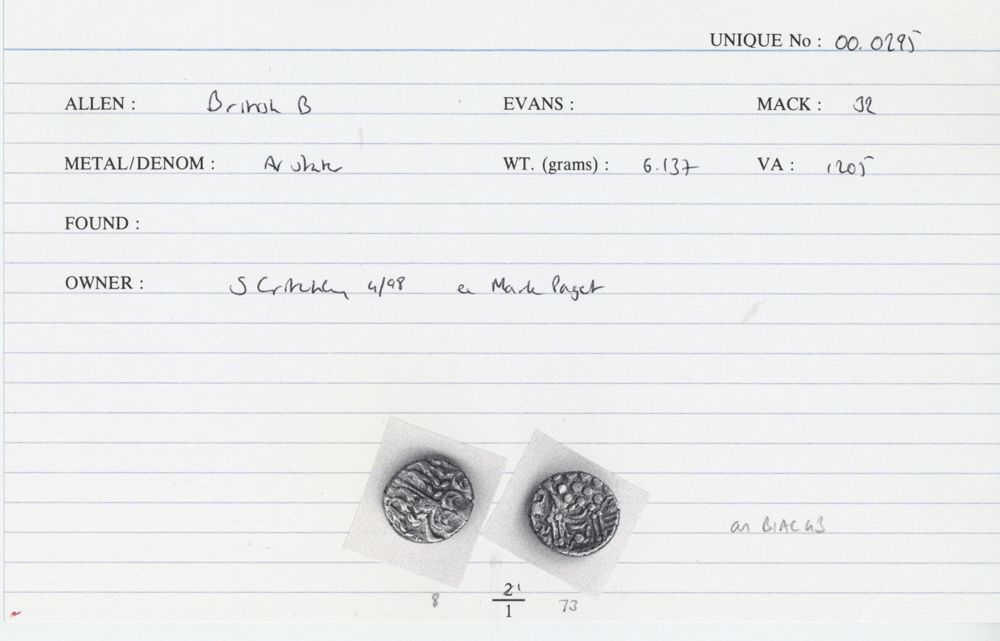 UNIQUE No : 00.0295
ALLEN : British B EVANS : MACK :
METAL/DENOM : Ar stater WT. (grams) : 6.137 VA : 1205
FOUND :
OWNER : S Critchley 4/98 ex Mark Paget
an BIAC 43
8 2 1 73
1